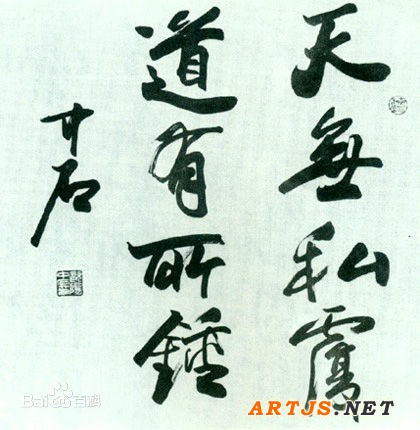 天無私
道有所鍾
石
Bai百科
ARTJS.NET